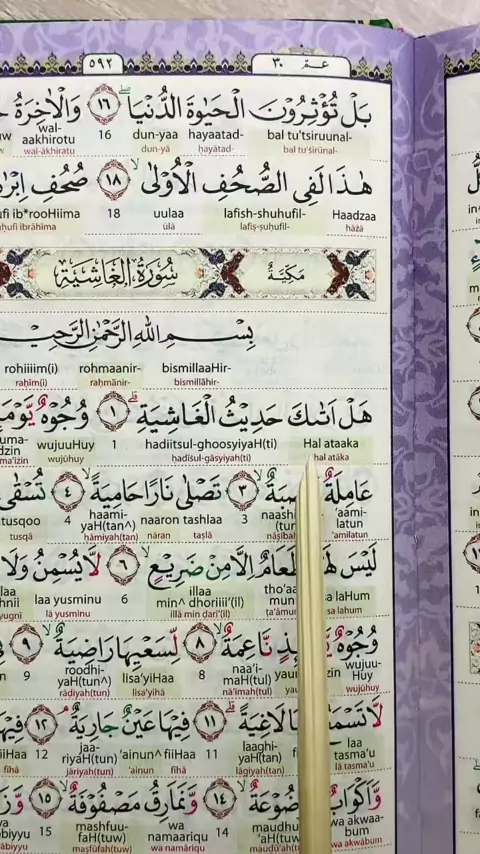 ٥٩٢ عمّ ٣٠
بَلْ تُؤْثِرُوْنَ الْحَيٰوةَ الدُّنْيَا ۖ ١٦ وَالْاٰخِرَةُ
bal tu'tsiruunal- hayaatad- dun-yaa 16 wal-aakhirotu
bal tu'śirūnal- ḥayātad- dun-yā wal-ākhiratu
هٰذَا لَفِى الصُّحُفِ الْاُوْلٰى ۙ ١٨ صُحُفِ
Haadzaa lafish-shuhufil- uulaa 18 ib*rooHiima
hāżā lafiṣ-ṣuḥufil- ūlā ibrāhīma
مَكِّيَّةٌ سُوْرَةُ الْغَاشِيَةِ
بِسْمِ اللّٰهِ الرَّحْمٰنِ الرَّحِيْمِ
bismillaaHir- rohmaanir- rohiiiim(i)
bismillāhir- raḥmānir- raḥīm(i)
هَلْ اَتٰىكَ حَدِيْثُ الْغَاشِيَةِ ۗ ١ وُجُوْهٌ
Hal ataaka hadiitsul-ghoosyiyaH(ti) 1 wujuuHuy
hal atāka ḥadīśul-gāsyiyah(ti) wujūhuy
عَامِلَةٌ ٣ تَصْلٰى نَارًا حَامِيَةً ۙ ٤ تُسْقٰى
'aami-latun 3 naaron tashlaa haami-yaH(tan^) 4 tusqoo
'āmilatun taṣlā nāran ḥāmiyah(tan) tusqā
لَيْسَ اِلَّا مِنْ ضَرِيْعٍ ۙ ٦ لَّا يُسْمِنُ وَلَا
illaa min^ dhoriii'(il) 6 laa yusminu
illā min ḍarī'(il) lā yusminu
وُجُوْهٌ نَّاعِمَةٌ ۙ ٨ لِّسَعْيِهَا رَاضِيَةٌ ۙ ٩
wujuu-Huy naa'i-maH(tul) 8 lisa'yiHaa roodhi-yaH(tun^) 9
wujūhuy nā'imah(tul) lisa'yihā rāḍiyah(tun)
لَاغِيَةً ۗ ١١ فِيْهَا عَيْنٌ جَارِيَةٌ ۘ ١٢ فِيْهَا
laa tasma'u laaghi-yaH(tan) 11 fiiHaa 'ainun^ jaa-riyaH(tun) 12
lā tasma'u lāgiyah(tan) fīhā 'ainun jāriyah(tun) fīhā
وَّاَكْوَابٌ ١٤ وَّنَمَارِقُ مَصْفُوْفَةٌ ۙ ١٥
wa akwaa-bum 14 wa namaariqu mashfuu-faH(tuw) 15
wa akwābum wa namāriqu maṣfūfah(tuw)